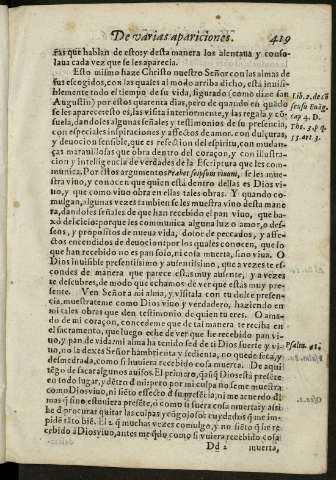 De varias apariciones. 419
ras que hablan de esto; y desta manera los alentaua y conso-
laua cada vez que se les aparecia.
Esto mismo haze Christo nuestro Señor con las almas de
sus escogidos, con las quales al modo arriba dicho, està inuisi-
blemente todo el tiempo de su vida, figurado (como dize san
Augustin) por estos quarenta dias, pero de quando en quãdo
se les aparece: esto es, las visita interiormente, y las regala y cõ-
suela, dandoles señales y testimonios de su presencia,
con especiales inspiraciones y affectos de amor, con dulçuras,
y deuocion sensible, que es refection del espiritu, con mudan-
ças marauillosas que obra dentro del coraçon, y con illustra-
cion y inteligencia de verdades de la Escriptura que les com-
munica. Por estos argumentos præbet seipsum viuum, se les mue-
stra viuo, y conocen que quien està dentro dellas es Dios vi-
uo, y que como viuo obra en ellas tales obras. Y quando co-
mulgan, algunas vezes tambien se les muestra viuo desta mane
ra, dandoles señales de que han recebido el pan viuo, que ba-
xó del cielo: porque les communica alguna luz o amor, o de-
sseos, y propositos de nueua vida, dolor de peccados, y affe-
ctos encendidos de deuocion: por los quales conocen, que lo
que han recebido no es pan solo, ni cosa muerta, sino viua. O
Dios inuisible presentissimo y ausentissimo, que a vezes te es-
condes de manera que parece estàs muy ausente, y a vezes
te descubres, de modo que echamos de ver que estàs muy pre
sente. Ven Señor a mi alma, y visitala con tu dulce presen-
cia, muestrateme como Dios viuo y verdadero, haziendo en
mi tales obras que den testimonio de quien tu eres. O ama-
do de mi coraçon, concedeme que de tal manera te reciba en
el sacramento, que luego eche de ver que he recebido pan vi-
uo, y pan de vida: mi alma ha tenido sed de ti Dios fuerte y vi-
uo, no la dexes Señor hambrienta y sedienta, no quede seca, y
desmedrada, como si huuiera recebido cosa muerta. De aqui
tẽgo de sacar algunos auisos. El primero, que aũq̃ Dios està presẽte
en todo lugar, y dẽtro d mi: pero por mi culpa no se me muestra
como Dios viuo, ni siẽto effecto d su presẽcia, ni me acuerdo dl
mas q̃ si no estuuiera presẽte, ò como si fuera cosa muerta: y assi
he d procurar quitar las culpas
rado este biẽ. El 2. q̃ muchas vezes comulgo, y no siẽto q̃ he re-
cebido à Dios viuo, antes me quedo como si vuiera recebido cosa
Dd 2 muerta,
Psalm. 41.